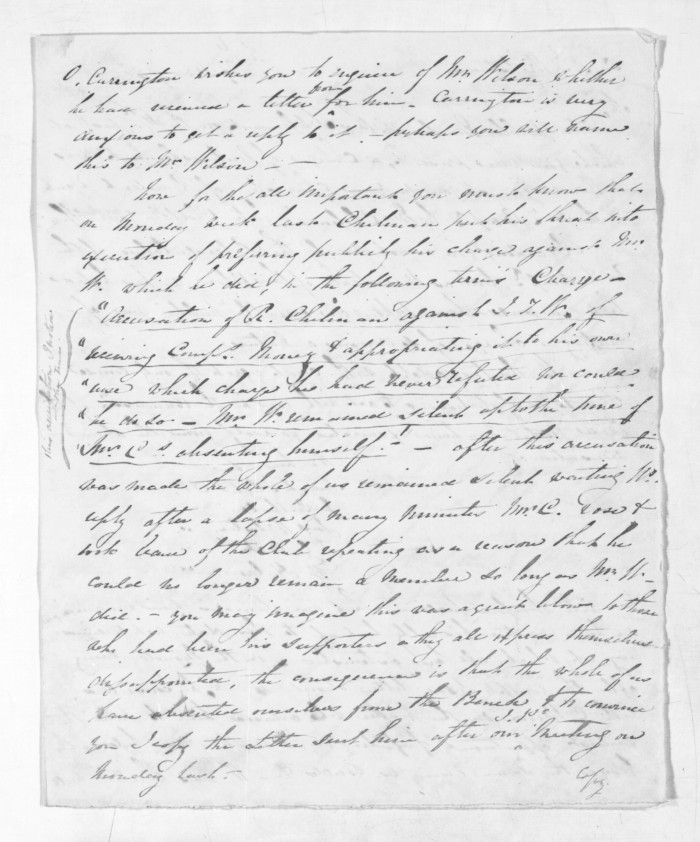 O. Carrington wishes you to enquire of Mr. Wilson whether
he have received a letter from him - Carrington is very
anxious to get a reply to it - perhaps you will name
this to Mr Wilson - -
Now for the all important you must know that
on Monday week last Chilman put his threat into
execution of preferring publicly his charge against Mr.
W. which he did, in the following terms Charge -
"Accusation of R. Chilman against I. T. W. of
"receiving Comps. Money & appropriating it to his own
"use which charge he had never refuted nor could
"he do so - Mr W. remained silent up to the time of
"Mr C's. absenting himself." - after this accusation
was made the whole of us remained silent waiting W's.
reply after a lapse of many minutes Mr. C. rose &
took leave of the Club repeating as a reason that he
could no longer remain a member so long as Mr W-
did. - You may imagine this was a great blow to those
who had been his supporters & they all express themselves
disappointed, the consequence is that the whole of us
have absented ourselves from the Bench, & to convince
you I copy the Letter sent him after our Meeting on
Monday last. -
Copy
this accusation